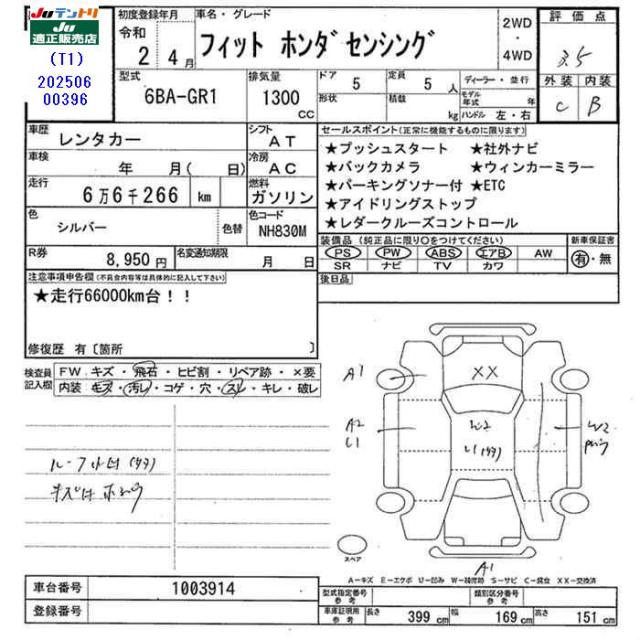 JUテントリ
JU
適正販売店
(T1)
202506
00396
初度登録年月
令和
2 年 4 月
車名・グレード
フィット ホンダセンシング
2WD
・
4WD
評価点
3.5
外装 内装
C B
型式
6BA-GR1
排気量
1300
cc
ドア 5
形状
定員 5 人
積載 kg
ディーラー・並行
モデル年式 年
ハンドル 左・右
車歴
レンタカー
シフト
AT
車検
年 月( 日)
冷房
AC
走行
6万6千266 km
燃料
ガソリン
色
シルバー
色替
色コード
NH830M
R券
8,950円
名変通知期限
月 日
セールスポイント(正常に機能するものに限ります)
★プッシュスタート ★社外ナビ
★バックカメラ ★ウィンカーミラー
★パーキングソナー付 ★ETC
★アイドリングストップ
★レダークルーズコントロール
装備品(純正品に限り○をつけてください)
PS PW ABS エアB AW
SR ナビ TV カワ
新車保証書
有・無
後日品
注意事項申告欄(不具合内容等は具体的に記入して下さい)
★走行66000km台!!
修復歴 有〔箇所 〕
検査員
記入欄
FW キズ・飛石・ヒビ割・リペア跡・×要
内装 キズ・汚レ・コゲ・穴・スレ・キレ・破レ
A1
XX
A2
U1
W2
U1
W2
スペア
A1
A-キズ E-エクボ U-凹み W-補修跡 S-サビ C-腐食 XX-交換済
車台番号
1003914
登録番号
型式指定番号
参考
類別区分番号
参考
車庫証明用
参考
長さ 399 cm 幅 169 cm 高さ 151 cm